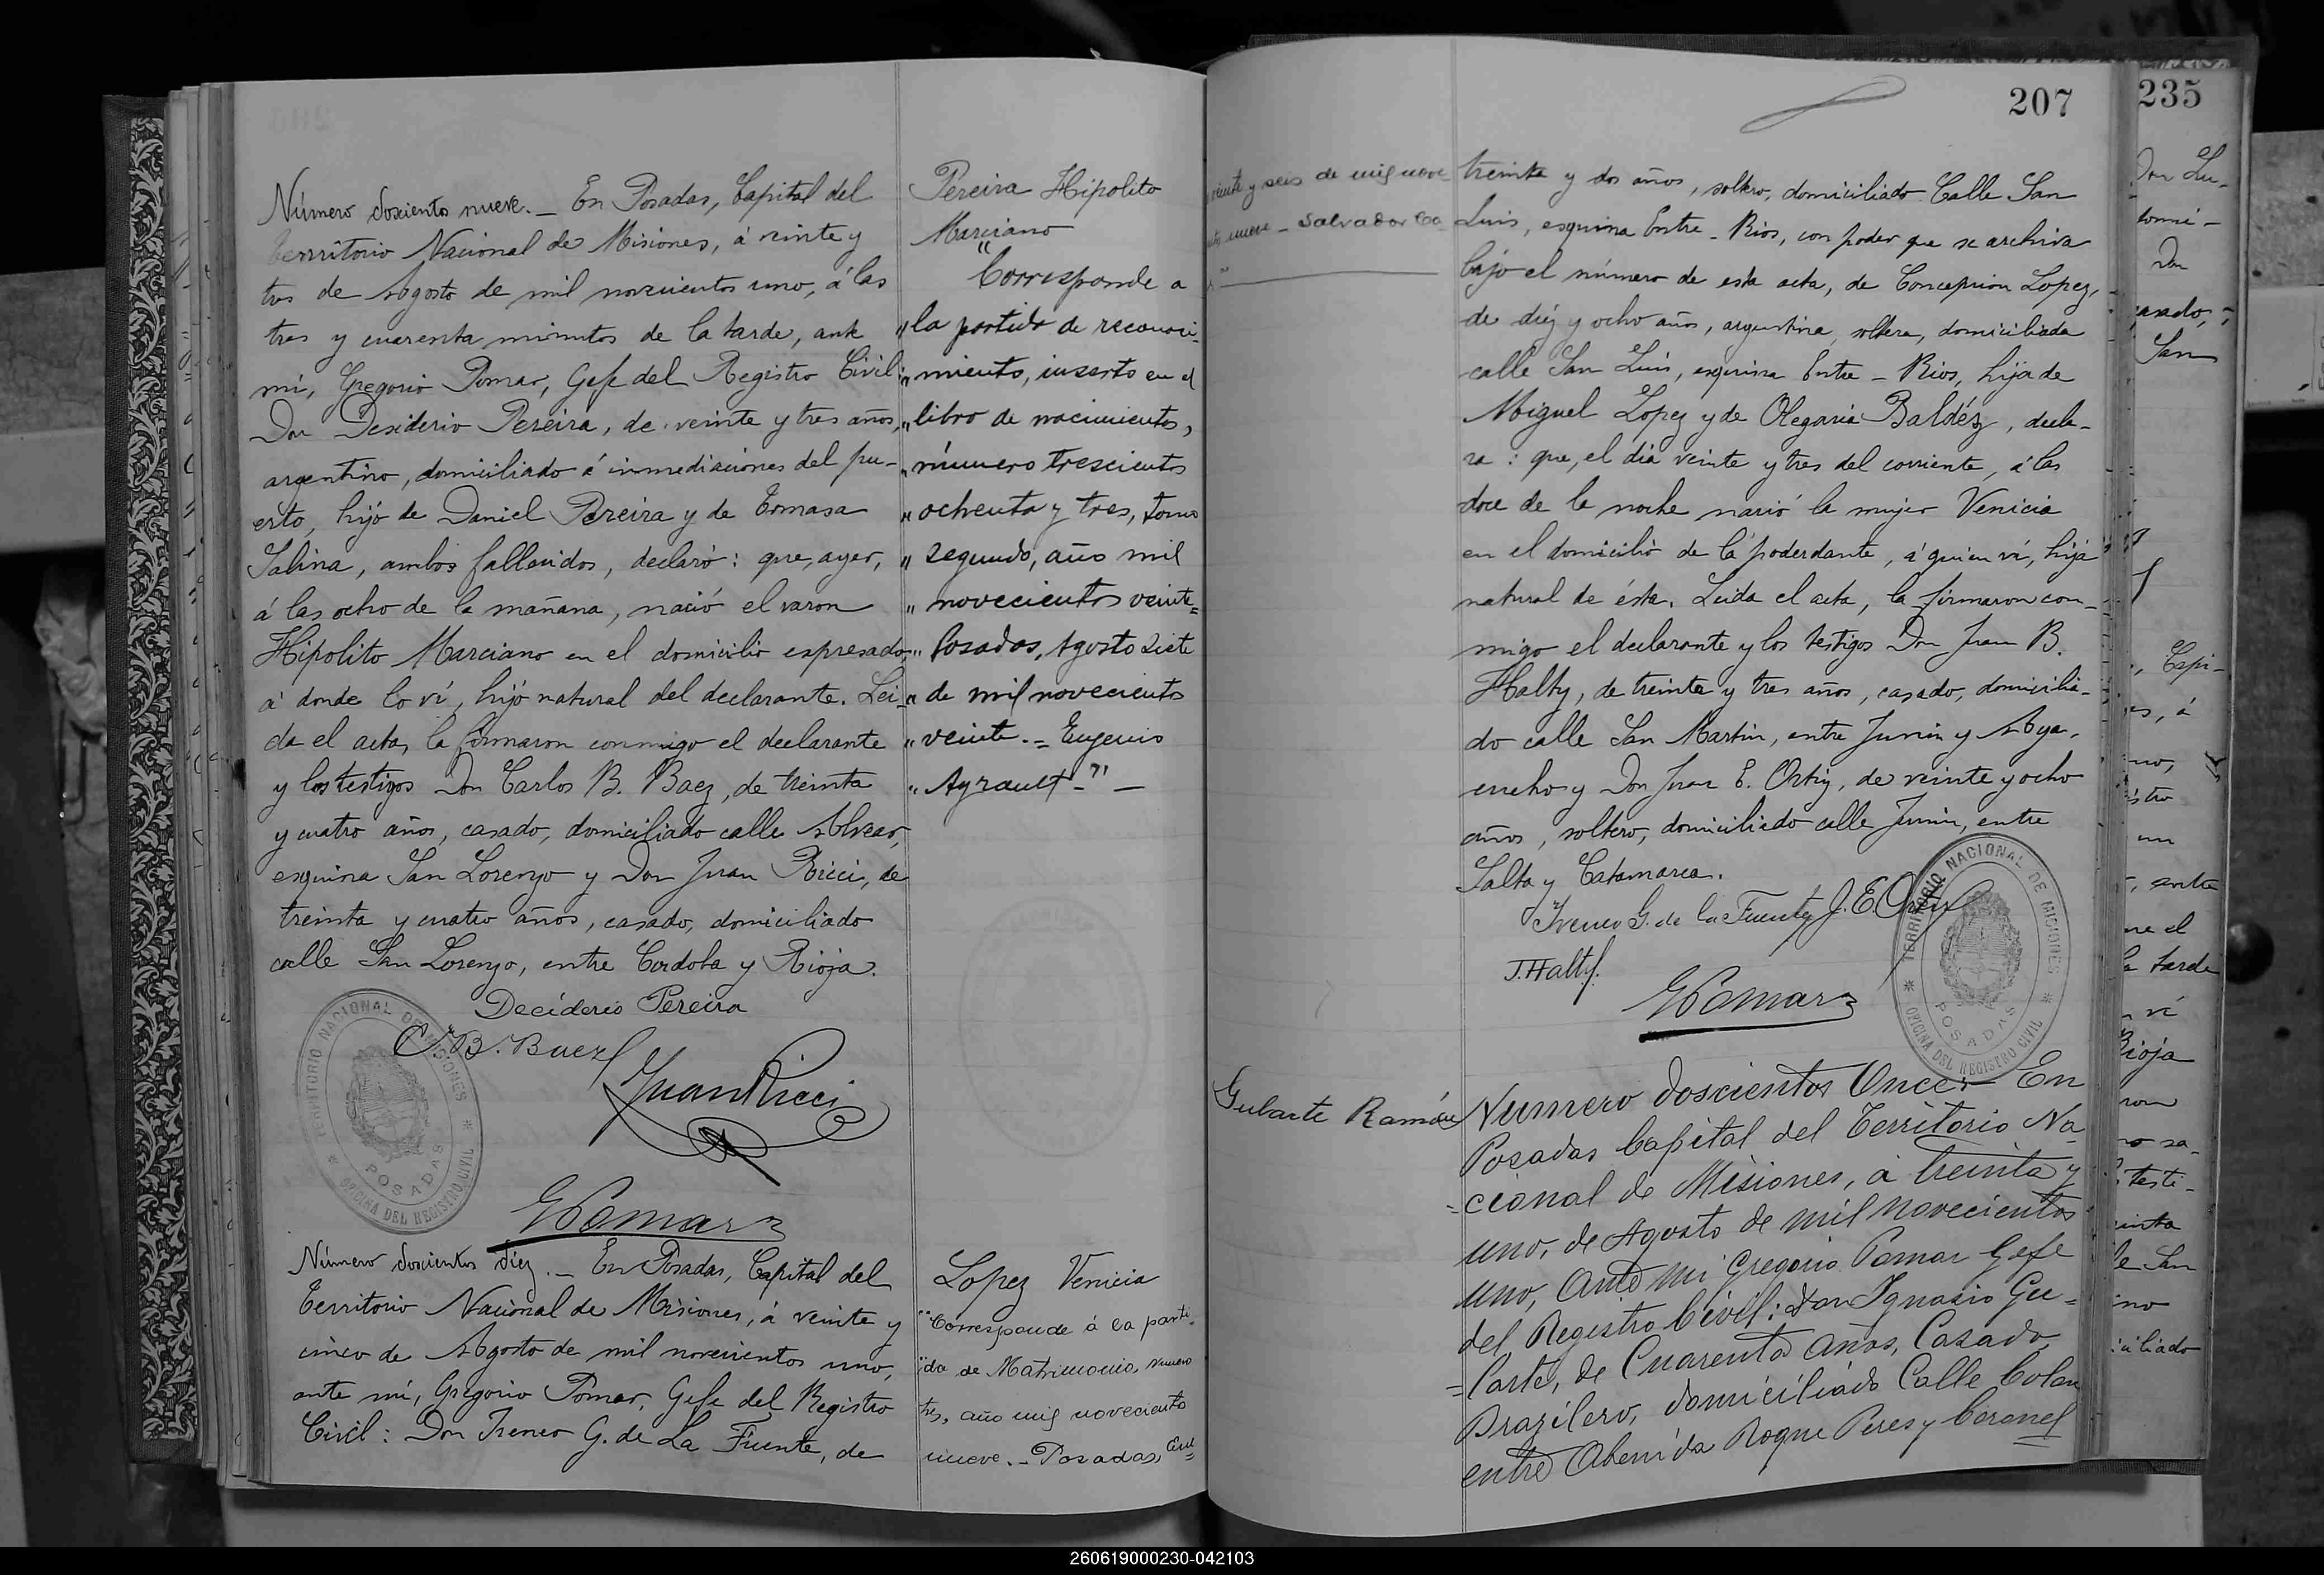 Número doscientos nueve. _ En Posadas, Capital del
territorio Nacional de Misiones, á veinte y
tres de Agosto de mil novecientos uno, á las
tres y cuarenta minutos de la tarde, ante
mí, Gregorio Pomar, Gefe del Registro Civil:
Don Desiderio Pereira, de veinte y tres años,
argentino, domiciliado á inmediaciones del pu-
erto, hijo de Daniel Pereira y de Tomasa
Salina, ambos fallecidos, declaró: que, ayer,
á las ocho de la mañana, nació el varon
Hipolito Marciano en el domicilio expresado,
á donde lo ví, hijo natural del declarante. Lei-
da el acta, la firmaron conmigo el declarante
y los testigos Don Carlos B. Baez, de treinta
y cuatro años, casado, domiciliado calle Alvear,
esquina San Lorenzo y Don Juan Ricci, de
treinta y cuatro años, casado, domiciliado
calle San Lorenzo, entre Cordoba y Rioja.
Decíderio Pereira
C. B. Baez
Juan Ricci
GPomar
TERRITORIO NACIONAL DE MISIONES
POSADAS
OFICINA DEL REGISTRO CIVIL
Pereira Hipolito
Marciano
" Corresponde a
" la partida de reconoci-
" miento, inserto en el
" libro de nacimientos,
" número trescientos
" ochenta y tres, tomo
" segundo, año mil
" novecientos veinte=
" Posadas, Agosto siete
" de mil novecientos
" veinte.= Eugenio
" Ayrault-" _
Número doscientos diez. _ En Posadas, Capital del
Territorio Nacional de Misiones, á veinte y
cinco de Agosto de mil novecientos uno,
ante mí, Gregorio Pomar, Gefe del Registro
Civil: Don Ireneo G. de La Fuente, de
Lopez Venicia
"Corresponde á la parti-
"da de Matrimonio, numero
tres, año mil novecientos
nueve. - Posadas,
207
veinte y seis de mil nove-
nueve - Salvador
treinta y dos años, soltero, domiciliado Calle San
Luis, esquina Entre-Rios, con poder que se archiva
bajo el número de esta acta, de Concepcion Lopez,
de diez y ocho años, argentina, soltera, domiciliada
calle San Luis, esquina Entre-Rios, hija de
Miguel Lopez y de Olegaria Baldéz, decla-
ra: que, el dia veinte y tres del corriente, á las
doce de la noche nació la mujer Venicia
en el domicilio de la poderdante, á quien ví, hija
natural de ésta. Leida el acta, la firmaron con-
migo el declarante y los testigos Don Juan B.
Halty, de treinta y tres años, casado, domicilia-
do calle San Martin, entre Junin y Aya-
cucho y Don Juan E. Ortiz, de veinte y ocho
años, soltero, domiciliado calle Junin, entre
Salta y Catamarca.
Ireneo G. de la Fuente J. E. Ortiz
J. Halty.
GPomar
TERRITORIO NACIONAL DE MISIONES
POSADAS
OFICINA DEL REGISTRO CIVIL
Gularte Ramón
Numero doscientos Once:- En
Posadas Capital del Territorio Na
-cional de Misiones, á treinta y
uno, de Agosto de mil novecientos
uno, Ante mi Gregorio Pomar Gefe
del Registro Civil: Don Ignasio Gu=
=larte, de Cuarenta años, Casado,
Brazilero, domiciliado Calle Colon
entre Abenida Roque Peres y Coronel
235
Don Lu-
domi-
Don
casado,
San
, Capi-
es, á
no,
stro
un
, ante
ue el
la tarde
ví
Rioja
ron
no sa-
testi-
inta
le San
ino
iciliado
260619000230-042103